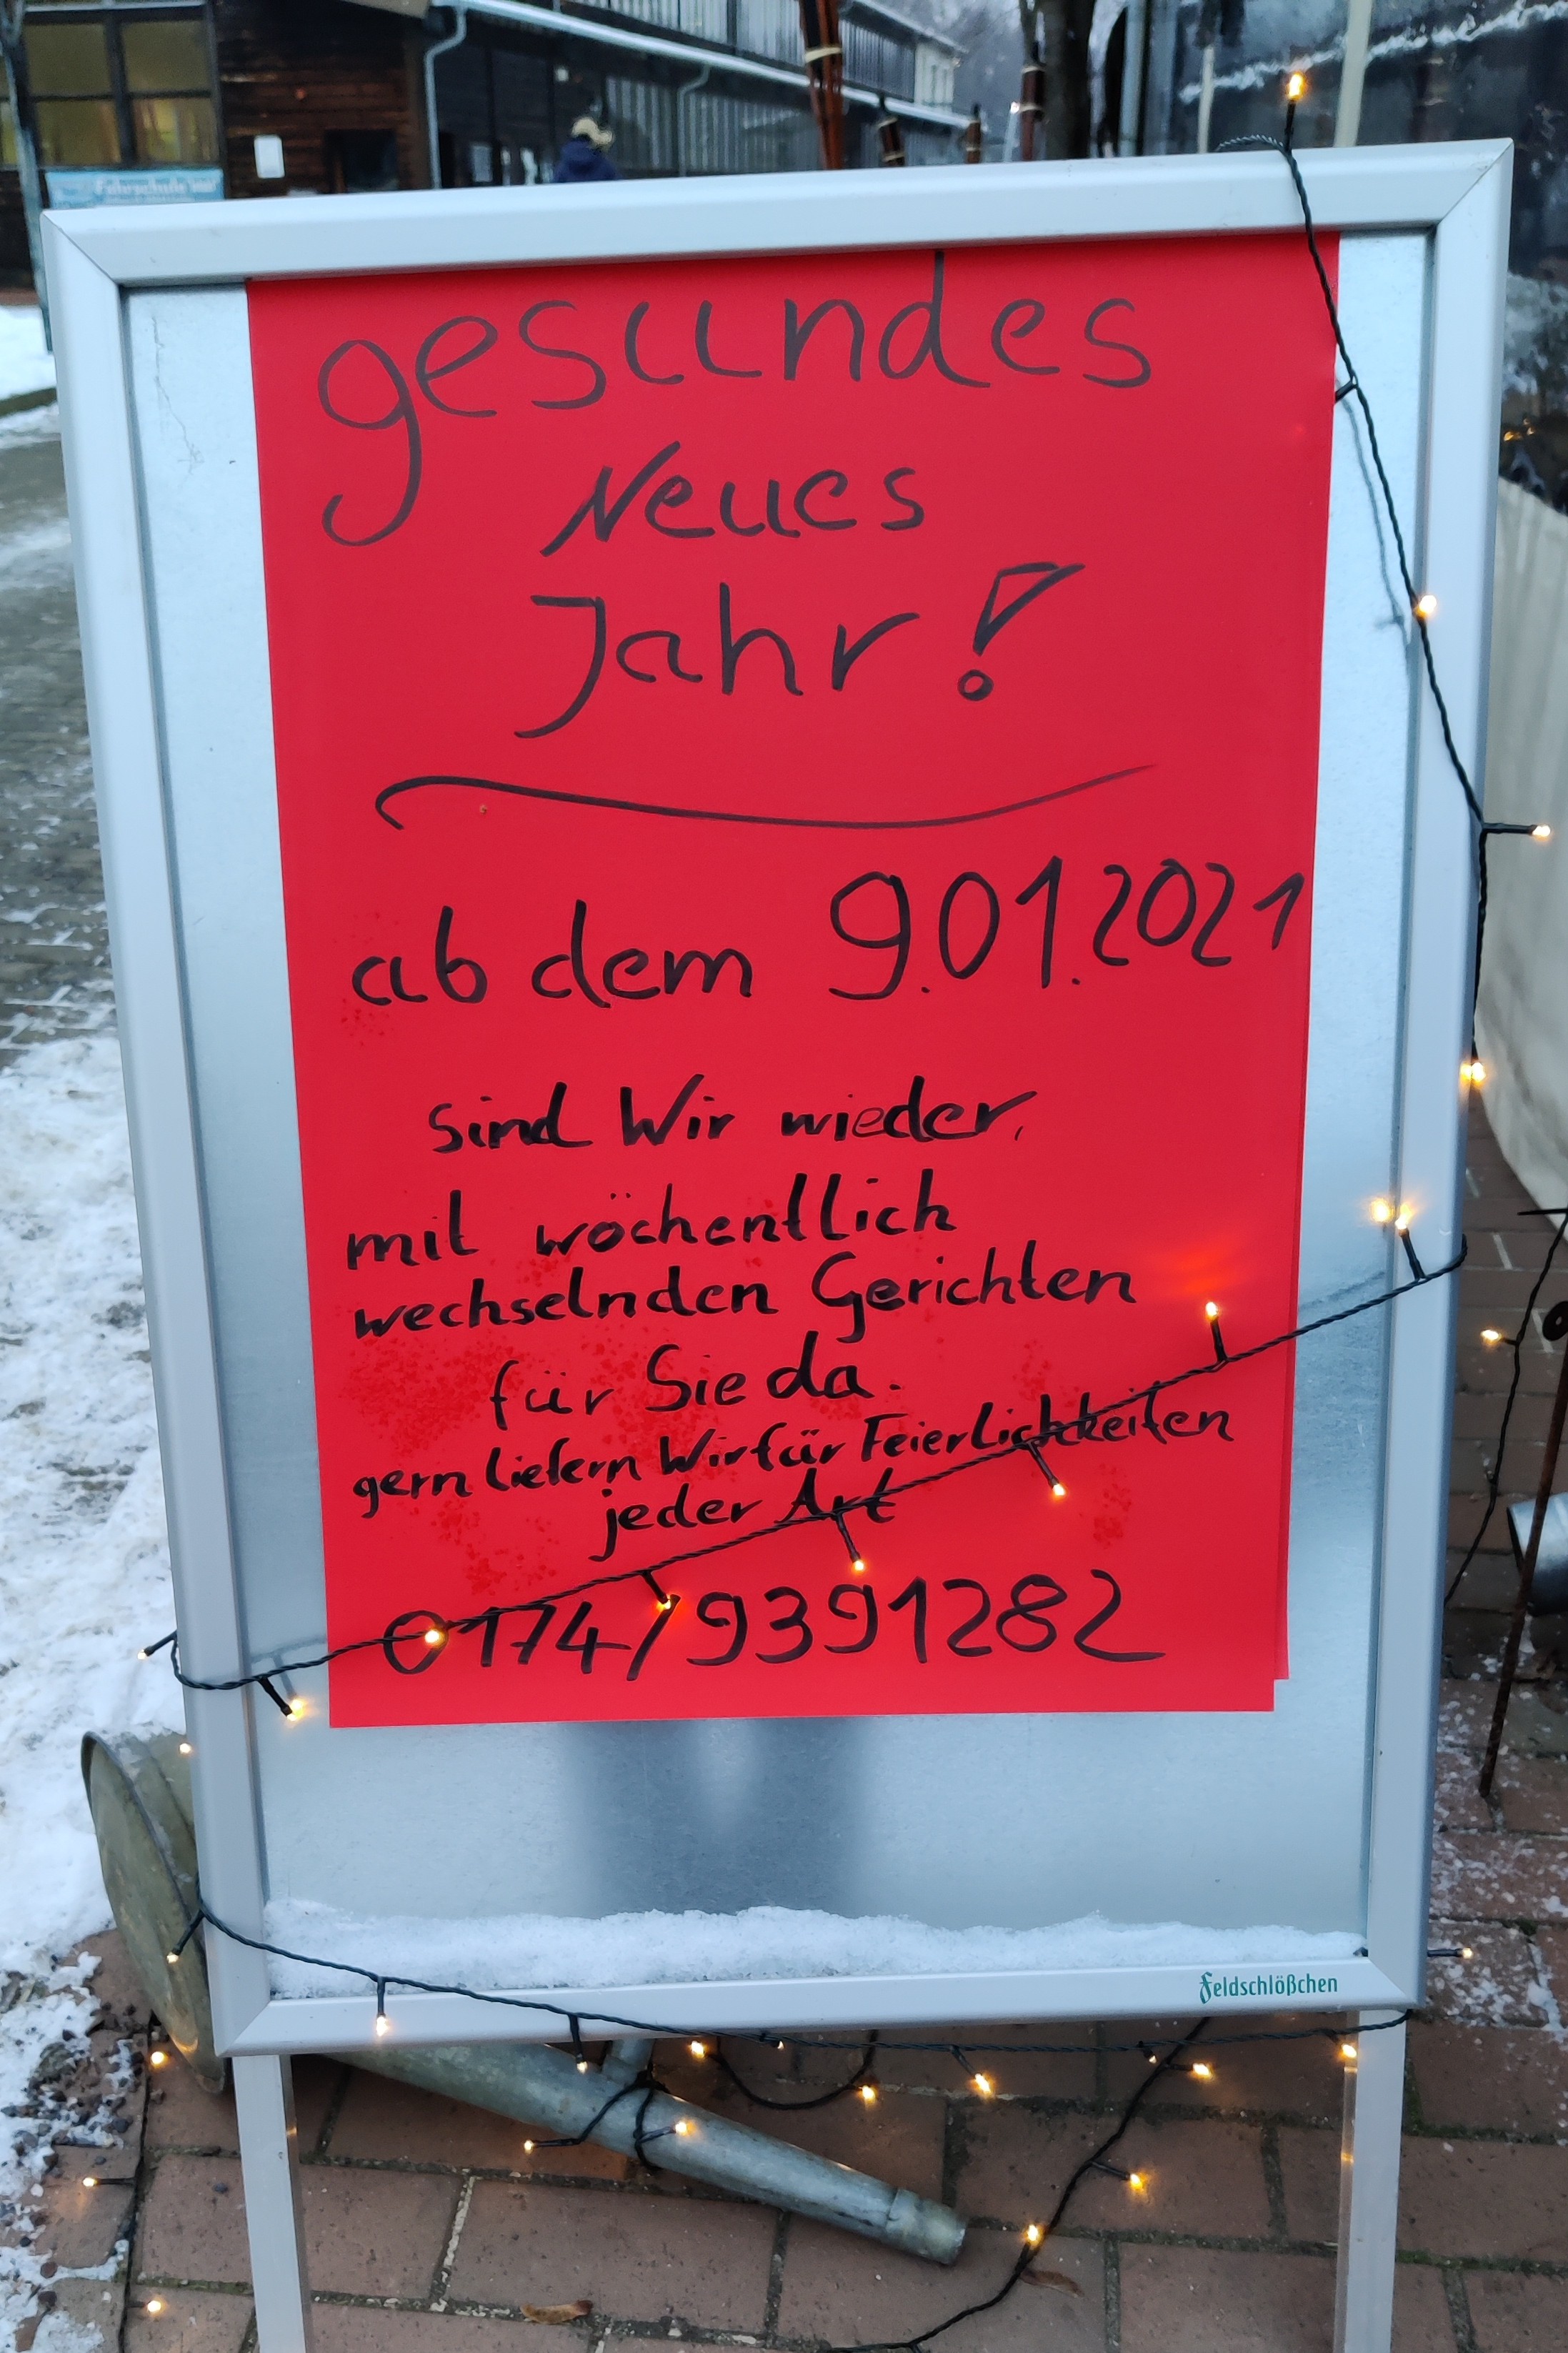 Fahrschule
gesundes
Neues
Jahr!
ab dem 9.01.2021
sind Wir wieder,
mit wöchentlich
wechselnden Gerichten
für Sie da.
gern liefern Wir für Feierlichkeiten
jeder Art
0174/9391282
Feldschlößchen